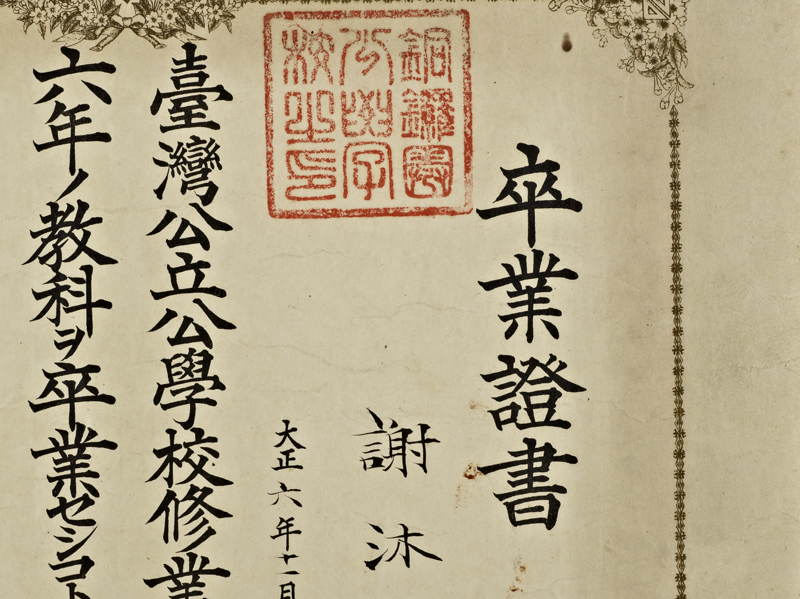 卒業證書
謝沐
大正六年十一月
銅鑼圈
公學字
校之印
臺灣公立公學校修業
六年ノ教科ヲ卒業ゼシコト